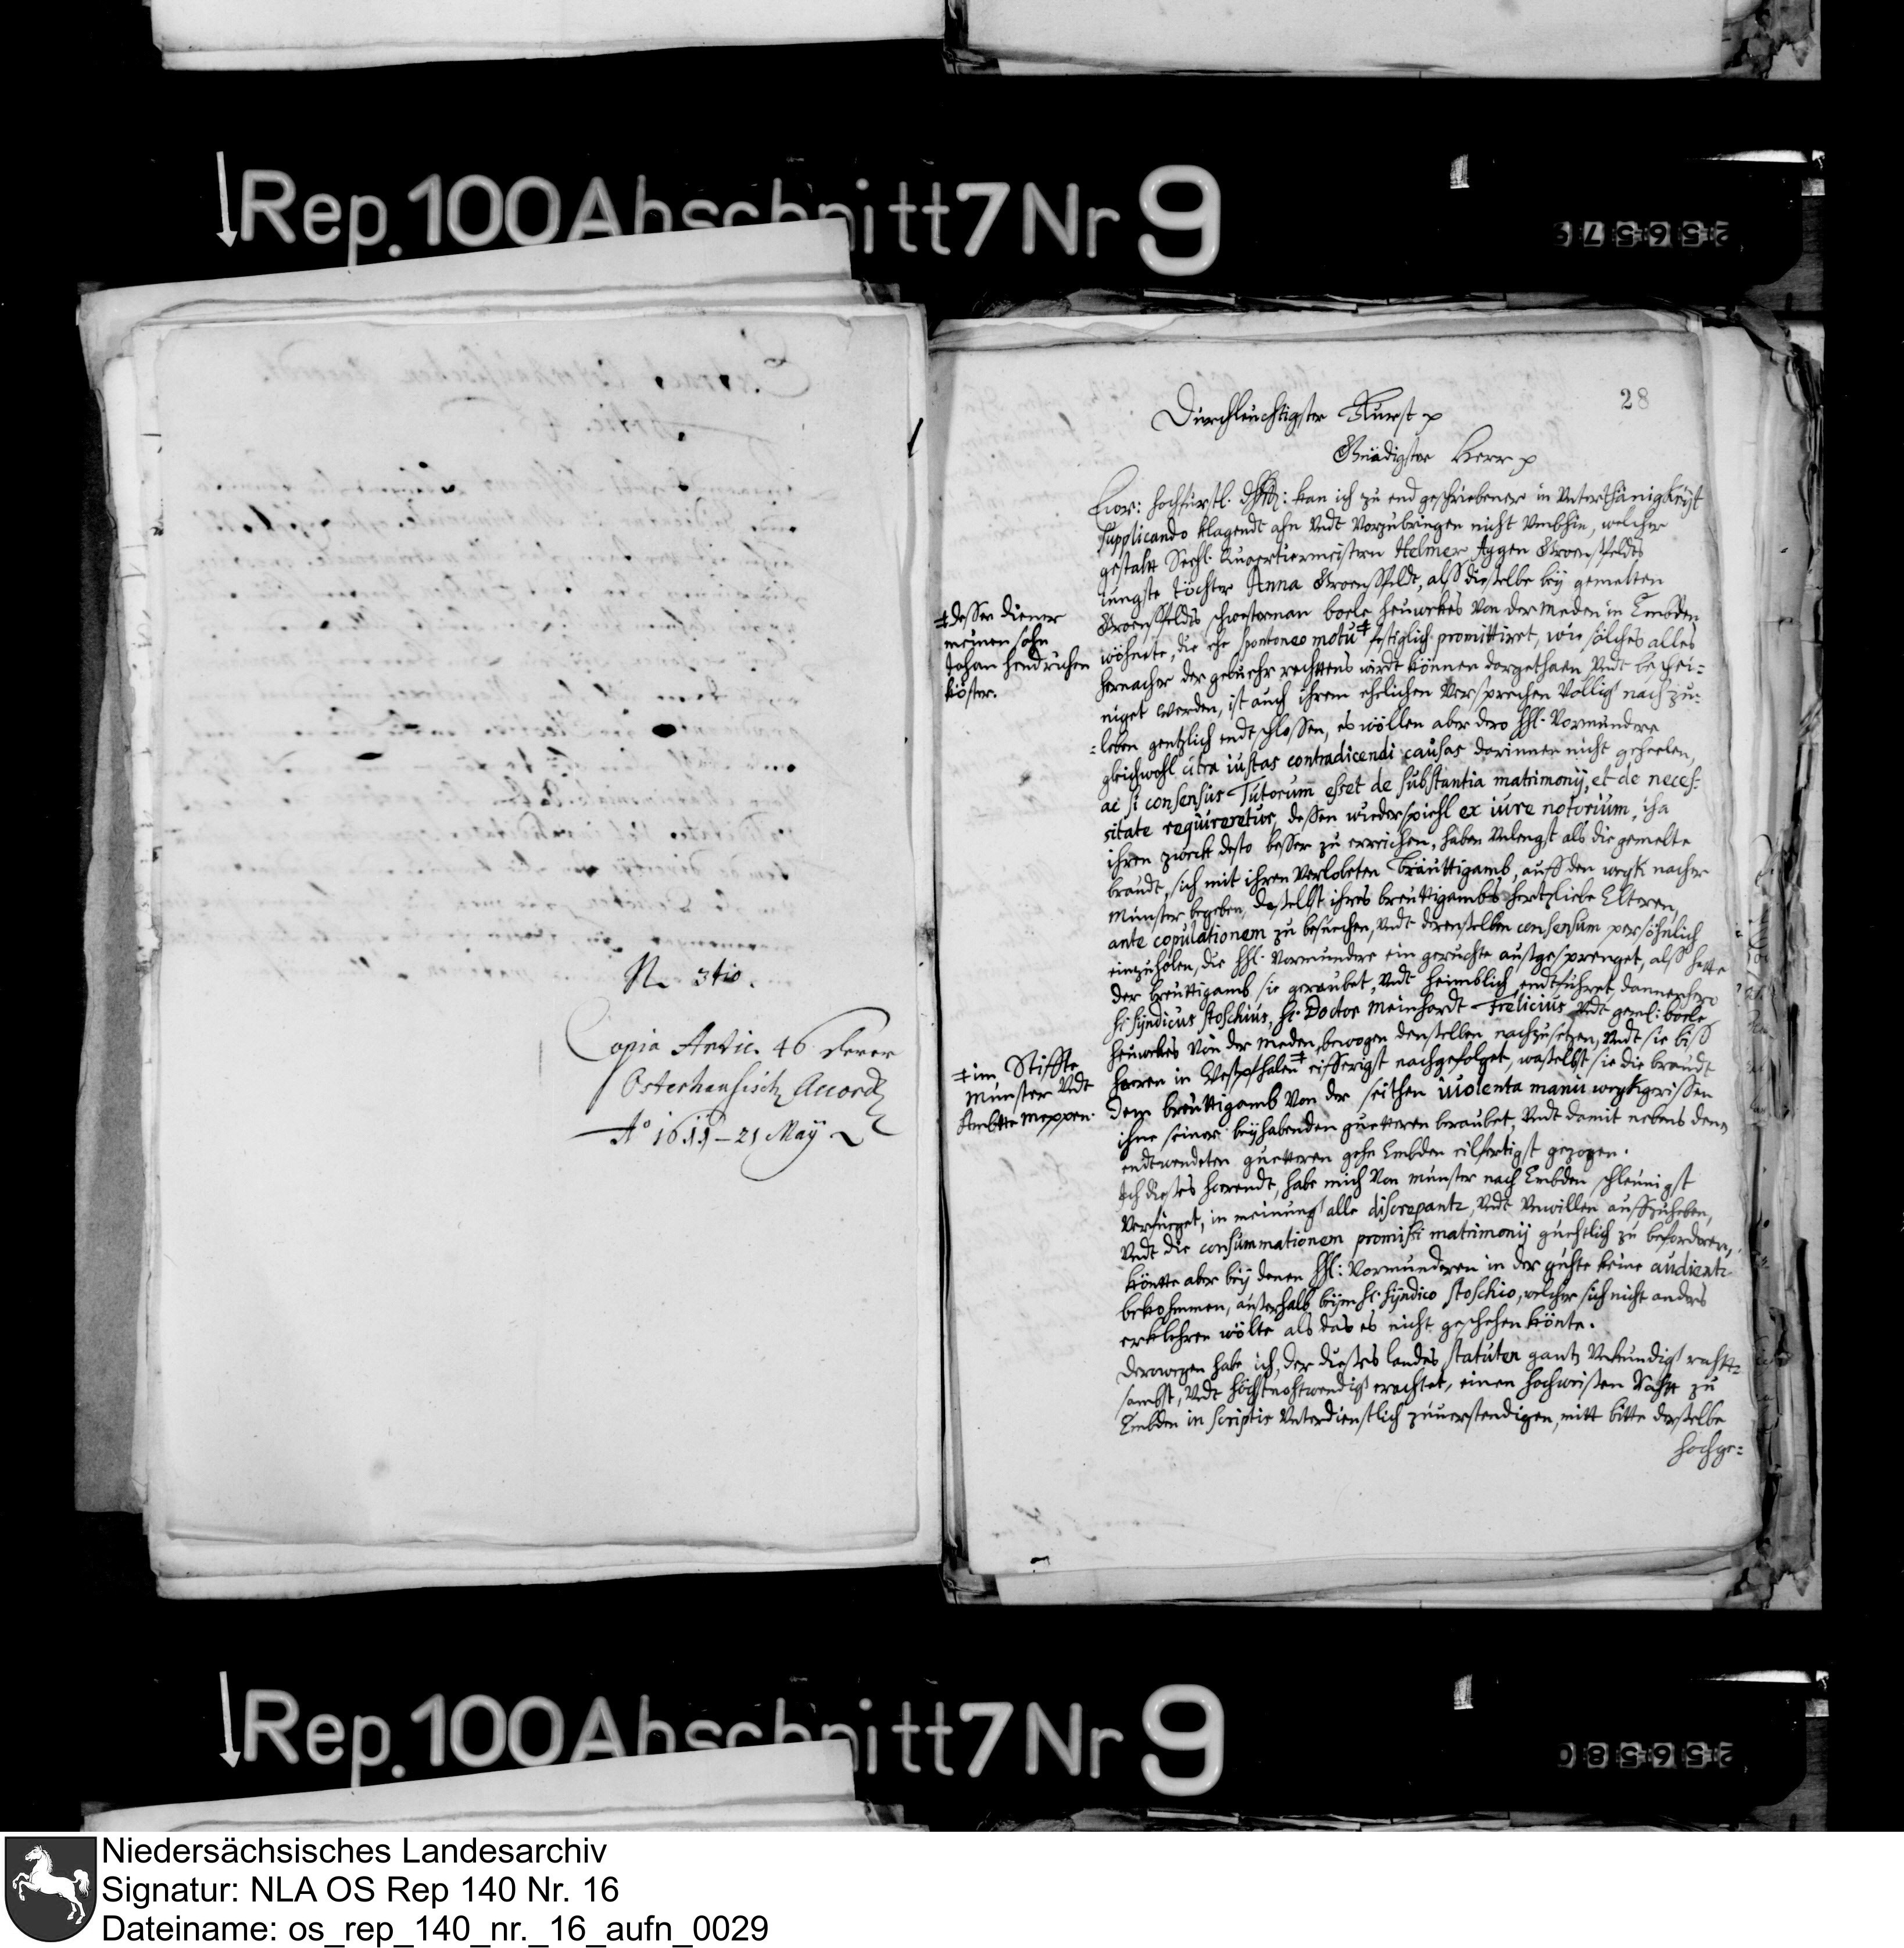 Rep. 100 Abschnitt 7 Nr 9
N. 3tio.
Copia Artic. 46 derer
Osterhausisch Accord
Ao 1611 - 21 Maij
28
Durchleuchtigster Furst p
Gnädigster Herr p
Ewr: hochfürstl. dhltt: kan ich zu end geschriebener in Unterthänigkeyt
supplicando klagendt ahn Undt Vorzubringen nicht Umbhin, welcher
gestalt Seehl. Quartiermeistern Helmer Aggen Groensfeldts
jungste töchter Anna Groensfeldt, alß dieselbe bey gemelten
Groensfeldts schwesterman boele heuwekes Von der Meden in Embden
wöhnete, die ehe spontaneo motu ‡ festiglich promittiret, wie solches alles
hernacher der gebuehr rechttens wirdt können dargethaen Undt beschei=
niget werden, ist auch ihrem ehelichen Versprechen Vollig nach zu=
=leben gentzlich endtschlossen, es wöllen aber dero hhl. Vormundere
gleichwohl citra iustas contradicendi causas darinnen nicht geheelen,
ac si consensus Tutorum esset de substantia matrimonij, et de neces=
sitate requireretur, dessen wiederspiehl ex iure notorium, iha
ihren zweck desto besser zu erreichen, haben Unlengst als die gemelte
braudt, sich mit ihren Verlobeten Bräuttigamb, auff den wegk nacher
Münster begeben, daselbst ihres breuttigambs hertzliebe Elteren,
ante copulationem zu besuechen, Undt derenselben consensum persöhnlich
einzuholen, die hhl. Vormundere ein geruchte außgesprenget, alß hette
der breuttigamb sie geraubet, Undt heimblich endtfuhret, dannenhero
hl Syndicus Stoschius, hl. Doctor Meinhardt Frelicius Undt geml: boele
heuwekes Von der Meden, bewogen denselben nachzusetzen, Undt sie biß
haren in Westpfhalen ‡ eifferigst nachgefolget, woselbst sie die braudt
dem breuttigamb Von der seithen violenta manu wegkgerissen
ihne seiner beyhabenden guetteren beraubet, Undt damit nebens denen
endtwendeten guetteren gehn Embden eilfertigst gezogen.
Ich dieses hoerendt, habe mich Von münster nach Embden schleunigst
Verfueget, in meinung alle discrepantz, Undt Unwillen auffzuheben,
Undt die consummationem promissi matrimonij güehtlich zu beforderen,
könte aber bey denen hhl: Vormunderen in der güehte keine audientz
bekohmmen, außerhalb beym hl. Syndico Stoschio, welcher sich nicht anders
erklehren wölte als das es nicht geschehen könte.
Derowegen habe ich, der dieses landes statuten gantz Unkundig rahtt=
sambst, Undt höchstnohtwendig erachtet, einen hochweisen Rahtt zu
Embden in scriptis Unterdienstlich zuuerstendigen, mitt bitte derselbe
hochge=
‡ dessen diener
meinen sohn
Johan Hendrichen
köster.
‡ im Stiffte
Münster Undt
Ambtte Meppen.
Rep. 100 Abschnitt 7 Nr 9
Niedersächsisches Landesarchiv
Signatur: NLA OS Rep 140 Nr. 16
Dateiname: os_rep_140_nr._16_aufn_0029